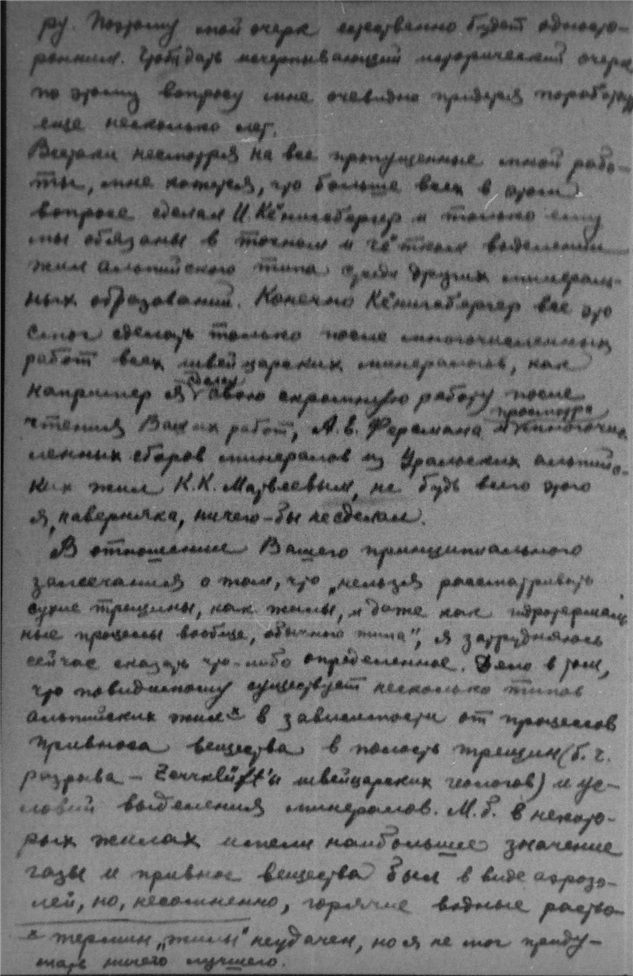 ру. Поэтому мой очерк естественно будет односто-
ронним. Чтоб дать исчерпывающий исторический очерк
по этому вопросу мне очевидно придется поработать
еще несколько лет.
Всетаки несмотря на все пропущенные мной рабо-
ты, мне кажется, что больше всех в этом
вопросе сделал И. Кёнигсбергер и только ему
мы обязаны в точном и чётком выделении
жил альпийского типа среди других минераль-
ных образований. Конечно Кёнигсбергер все это
смог сделать только после многочисленных
работ всех швейцарских минералогов, как
например я сделал свою скромную работу после
чтения Ваших работ, А.Е. Ферсмана и просмотра многочис-
ленных сборов минералов из Уральских альпийс-
ких жил К.К. Матвеевым, не будь всего этого
я, наверняка, ничего-бы не сделал.
В отношении Вашего принципиального
замечания о том, что „нельзя рассматривать
сухие трещины, как жилы, и даже как гидротермаль-
ные процессы вообще, обычного типа", я затрудняюсь
сейчас сказать что-либо определенное. Дело в том,
что повидимому существует несколько типов
альпийских жил х в зависимости от процессов
привноса вещества в полость трещин (б. ч.
разрыва – Zerrklüft'ы швейцарских геологов) и ус-
ловий выделения минералов. М.б. в некото-
рых жилах имели наибольшее значение
газы и привнос вещества был в виде аэрозо-
лей, но, несомненно, горячие водные раство-
х термин „жилы" неудачен, но я не мог приду-
мать ничего лучшего.